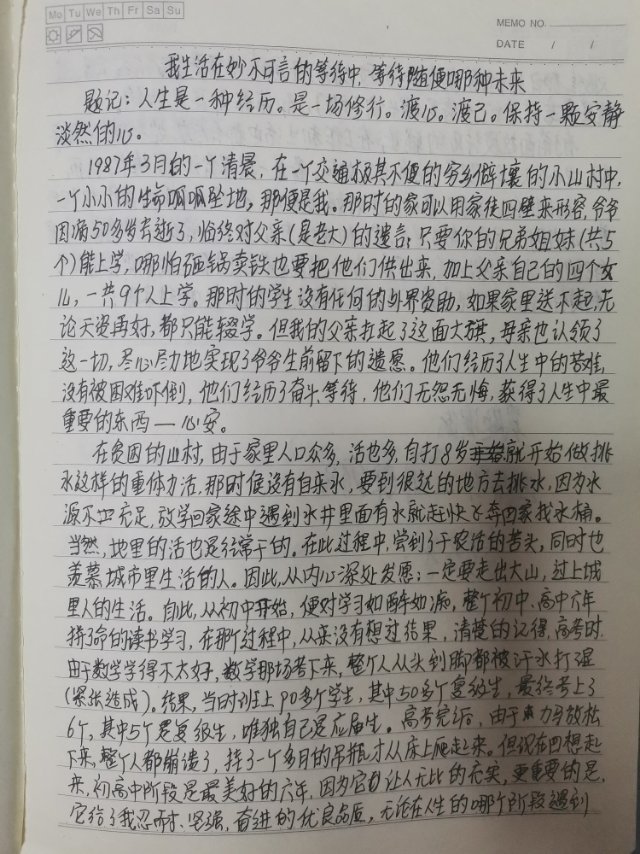 Mo Tu We Th Fr Sa Su
MEMO NO.
DATE / /
我生活在妙不可言的等待中,等待随便哪种未来
题记:人生是一种经历。是一场修行。渡心。渡己。保持一颗安静
淡然的心。
1987年3月的一个清晨,在一个交通极其不便的穷乡僻壤的小山村中,
一个小小的生命呱呱坠地,那便是我。那时的家可以用家徒四壁来形容,爷爷
因病50多岁去逝了,临终对父亲(是老大)的遗言:只要你的兄弟姐妹(共5
个)能上学,哪怕砸锅卖铁也要把他们供出来,加上父亲自己的四个女
儿,一共9个人上学。那时的学生没有任何的外界资助,如果家里送不起,无
论天资再好,都只能辍学。但我的父亲扛起了这面大旗,母亲也认领了
这一切,尽心尽力地实现了爷爷生前留下的遗愿。他们经历了人生中的苦难,
没有被困难吓倒,他们经历了奋斗、等待,他们无怨无悔,获得了人生中最
重要的东西——心安。
在贫困的山村,由于家里人口众多,活也多,自打8岁就开始做挑
水这样的重体力活,那时候没有自来水,要到很远的地方去挑水,因为水
源不充足,放学回家途中遇到水井里面有水就赶快飞奔回家找水桶。
当然,地里的活也是经常干的。在此过程中,尝到了干农活的苦头,同时也
羡慕城市里生活的人。因此,从内心深处发愿:一定要走出大山,过上城
里人的生活。自此,从初中开始,便对学习如醉如痴,整个初中、高中六年
拼了命的读书学习,在那个过程中,从来没有想过结果,清楚的记得,高考时,
由于数学学得不太好,数学那场考下来,整个人从头到脚都被汗水打湿
(紧张造成)。结果,当时班上90多个学生,其中50多个复级生,最终考上了
6个,其中5个是复级生,唯独自己是应届生。高考完后,由于力马放松
下来,整个人都崩溃了,挂了一个多月的吊瓶才从床上爬起来。但现在回想起
来,初高中阶段是最美好的六年,因为它让人无比的充实,更重要的是,
它给了我忍耐、坚强、奋进的优良品质,无论在人生的哪个阶段遇到